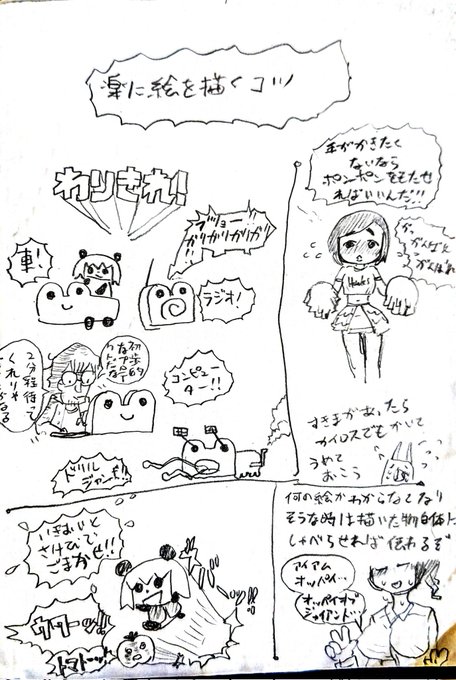 楽に絵を描くコツ
わりきれ!
車!
ブジョー!!
ガリガリガリガリ!
ラジオ!
初歩的
2分程待って
くれりゃ
コンピュー
ター!!
ドリル
ジャンボ!!
手がかきたく
ないなら
ポンポンをもたせ
ればいいんだ!!!
がんばれ
がんばれ
Hawks
すきまがあったら
カイロスでもかいて
うめて
おこう
いきおいと
さけびで
ごまかせ!!
ウワーッ!!
トマトーッ!
何の絵かわからなくなり
そうな時は描いた物自体に
しゃべらせれば伝わるぞ
アイアム
オッパイ…
オッパイオブ
ジャイアント…